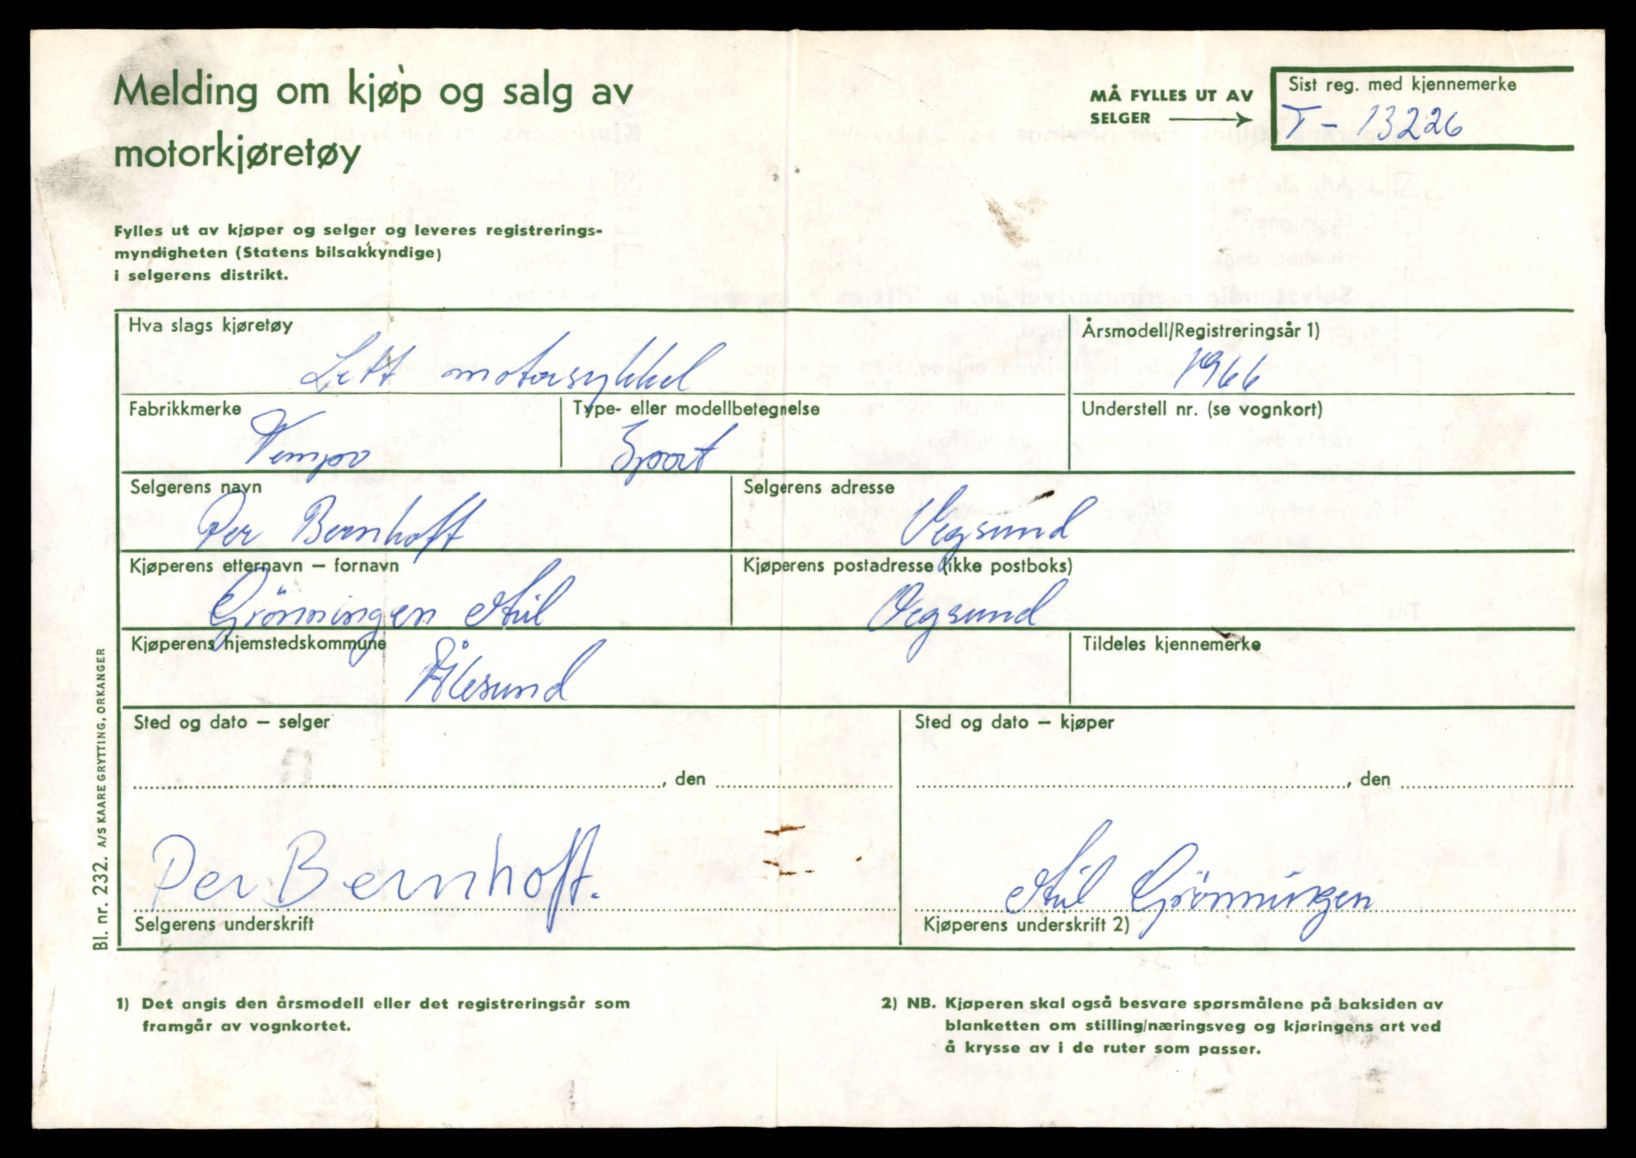 Melding om kjøp og salg av
motorkjøretøy
MÅ FYLLES UT AV
SELGER
Sist reg. med kjennemerke
T - 13226
Fylles ut av kjøper og selger og leveres registrerings-
myndigheten (Statens bilsakkyndige)
i selgerens distrikt.
Hva slags kjøretøy
Lett motorsykkel
Årsmodell/Registreringsår 1)
1966
Fabrikkmerke
Tempo
Type- eller modellbetegnelse
Sport
Understell nr. (se vognkort)
Selgerens navn
Per Bernhoft
Selgerens adresse
Vegsund
Kjøperens etternavn – fornavn
Grönningen
Kjøperens postadresse (ikke postboks)
Vegsund
Kjøperens hjemstedskommune
Ålesund
Tildeles kjennemerke
Sted og dato – selger
, den
Sted og dato – kjøper
, den
Per Bernhoft.
Selgerens underskrift
Grönningen
Kjøperens underskrift 2)
Bl. nr. 232. A/S KAARE GRYTTING, ORKANGER
1) Det angis den årsmodell eller det registreringsår som
framgår av vognkortet.
2) NB. Kjøperen skal også besvare spørsmålene på baksiden av
blanketten om stilling/næringsveg og kjøringens art ved
å krysse av i de ruter som passer.